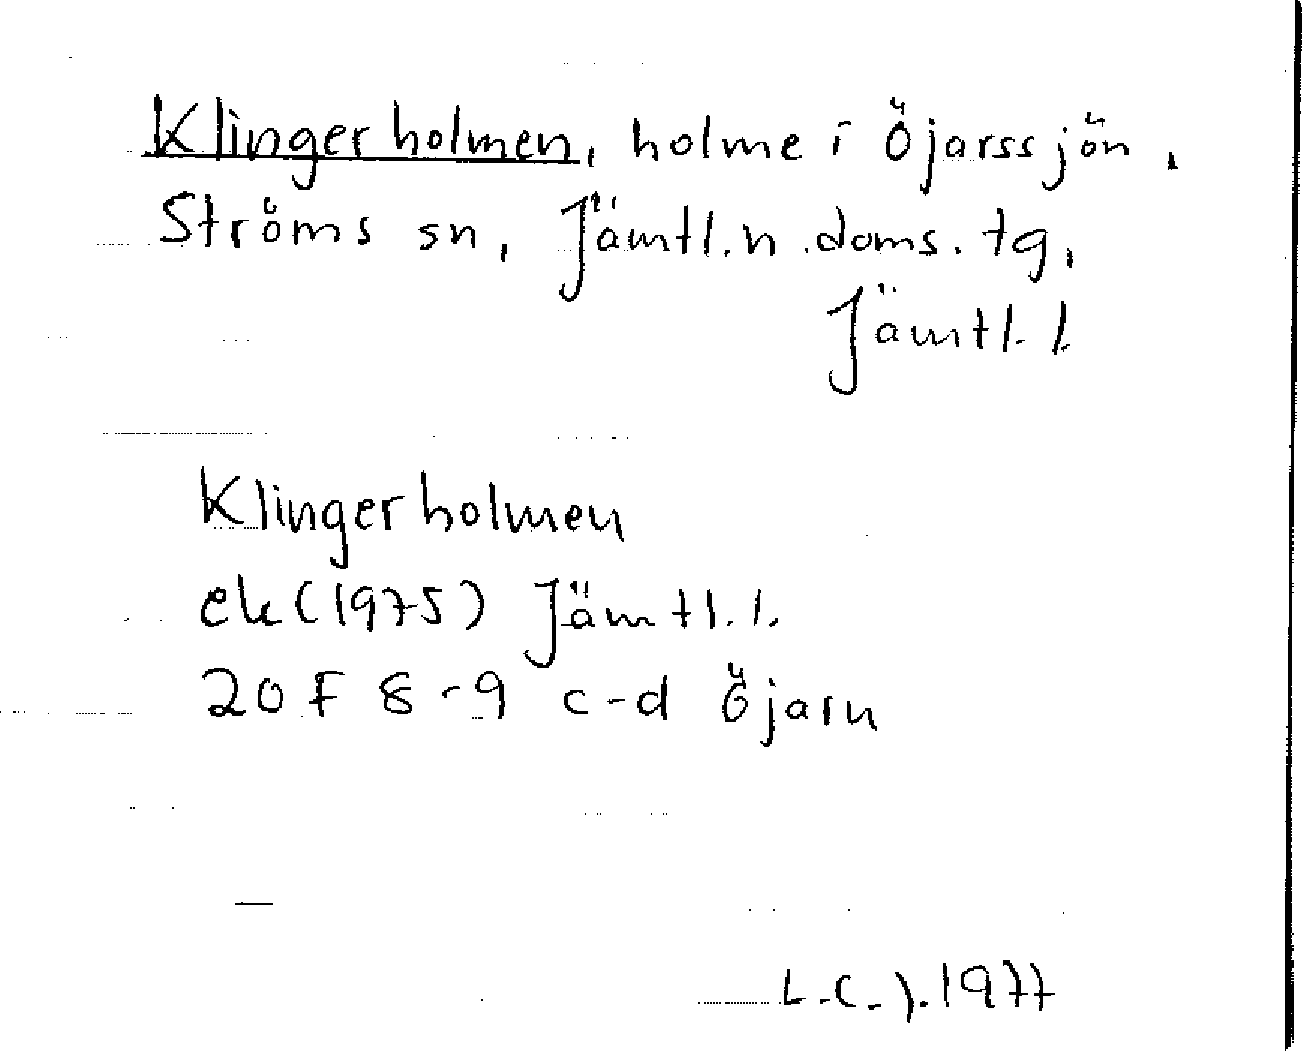 Klingerholmen, holme i Öjarssjön,
Ströms sn, Jämtl.n.doms.tg,
Jämtl. l.
Klingerholmen
ek (1975) Jämtl. l.
20 F 8-9 c-d Öjarn
L.C.J. 1977